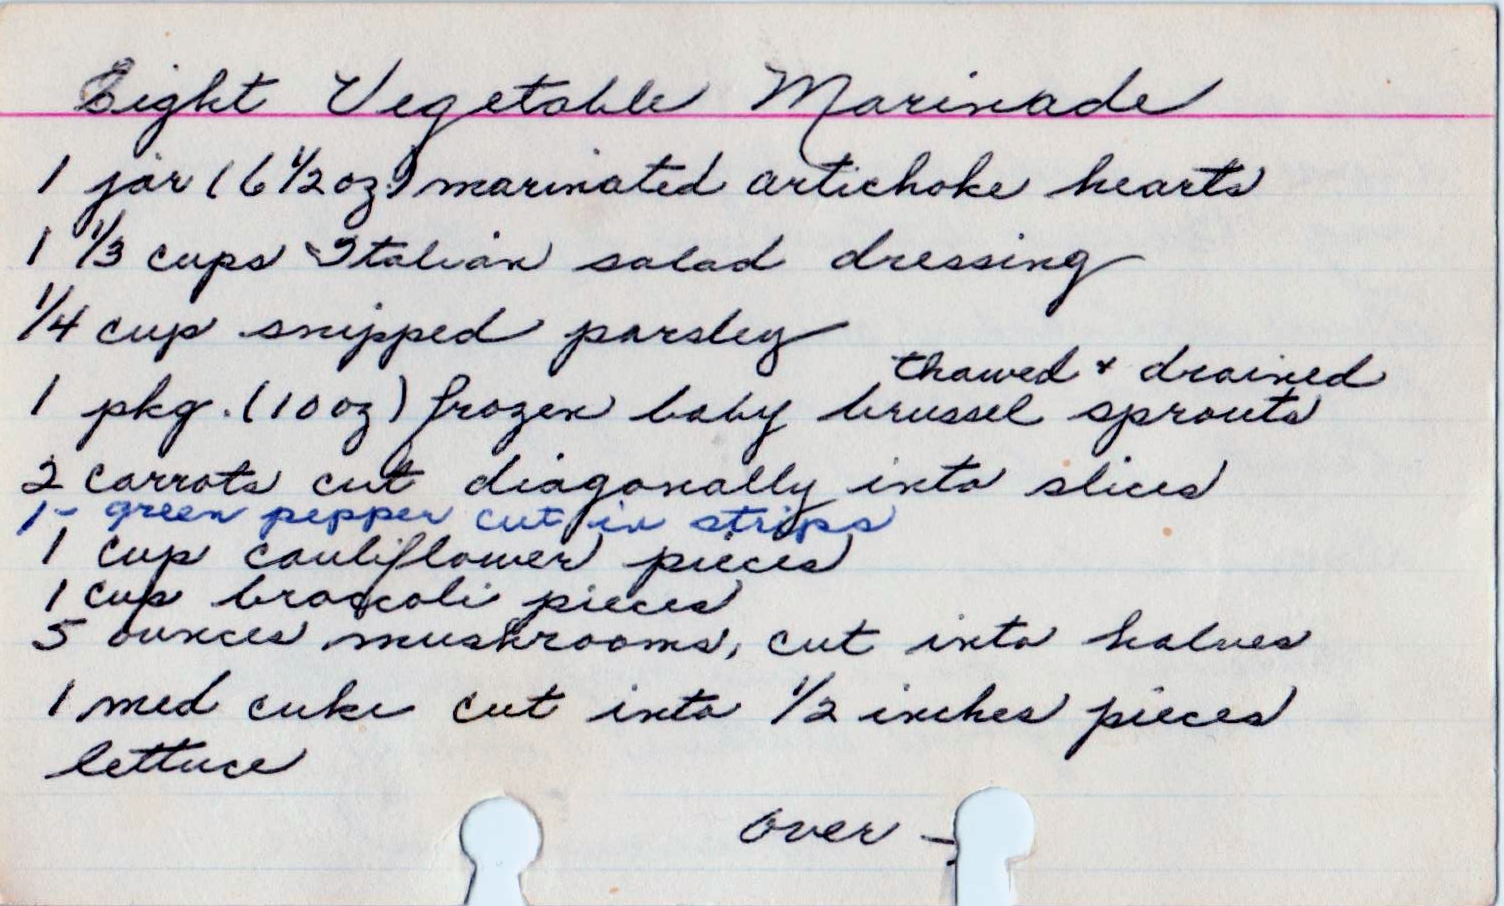 Eight Vegetable Marinade
1 jar (6 1/2 oz.) marinated artichoke hearts
1 1/3 cups Italian salad dressing
1/4 cup snipped parsley
thawed & drained
1 pkg. (10 oz) frozen baby brussel sprouts
2 carrots cut diagonally into slices
1 - green pepper cut in strips
1 cup cauliflower pieces
1 cup broccoli pieces
5 ounces mushrooms, cut into halves
1 med cuke cut into 1/2 inches pieces
lettuce
over -